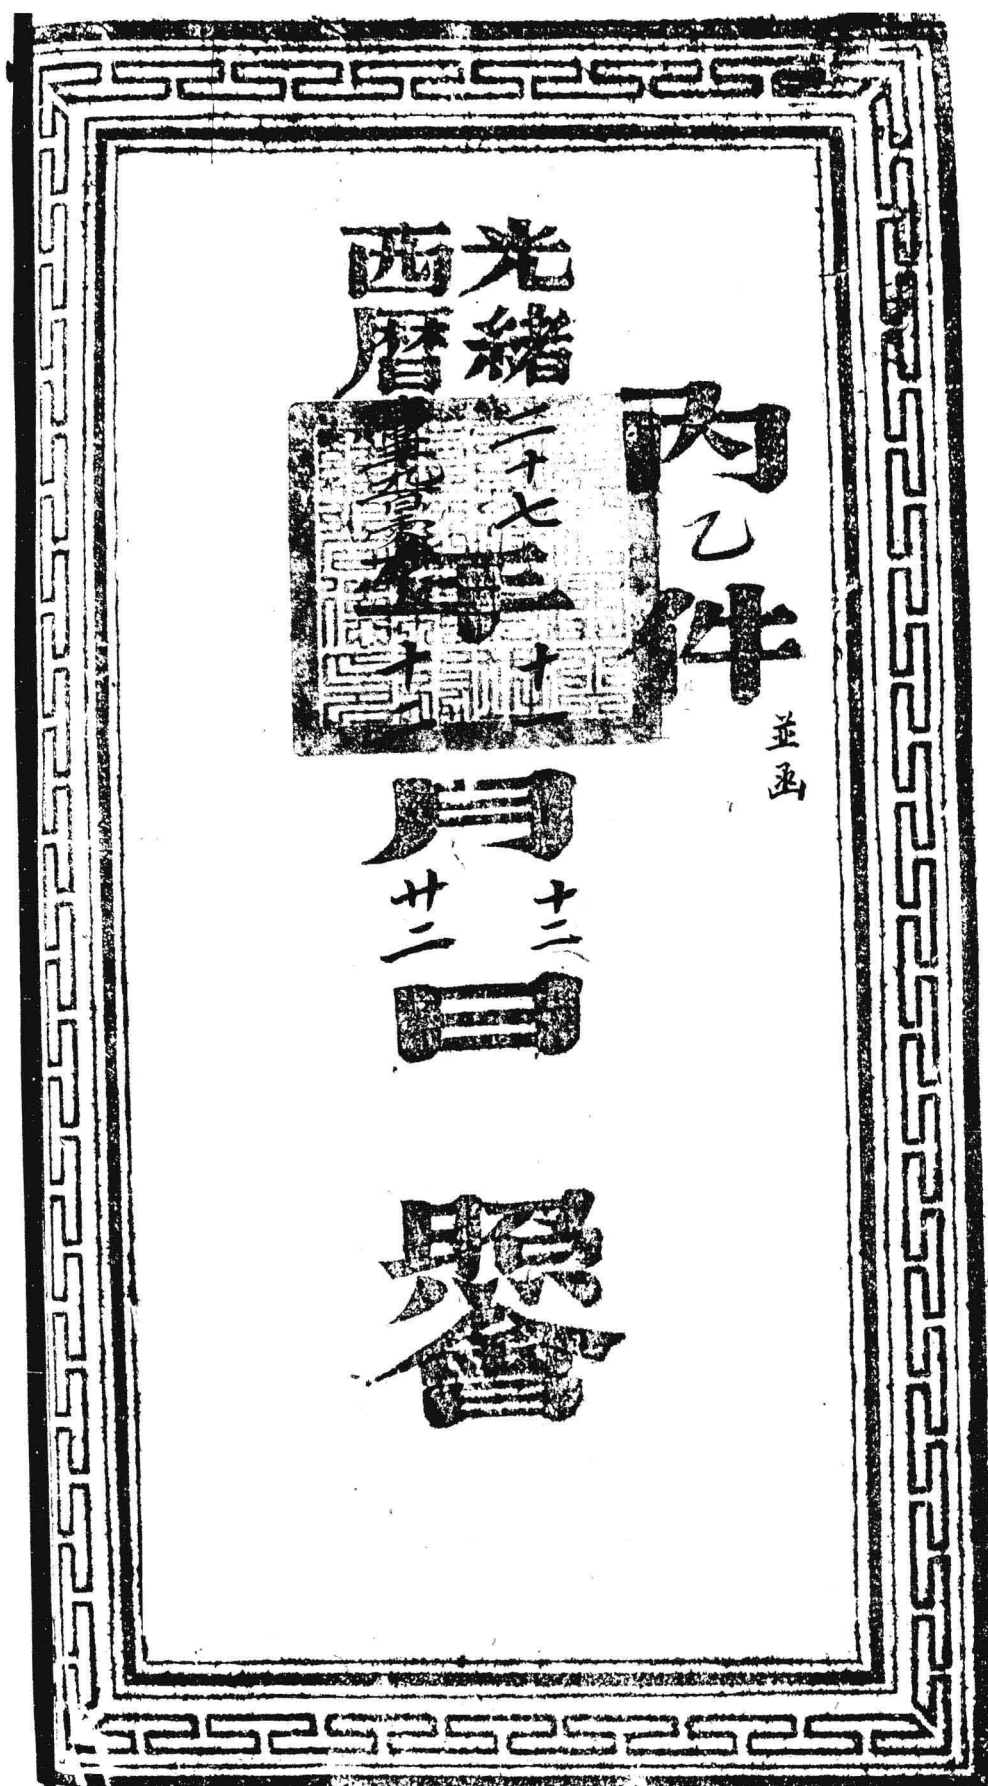 内乙件 並函
光緒二十七年十一月十二日
西暦年十二月廿二日
照會